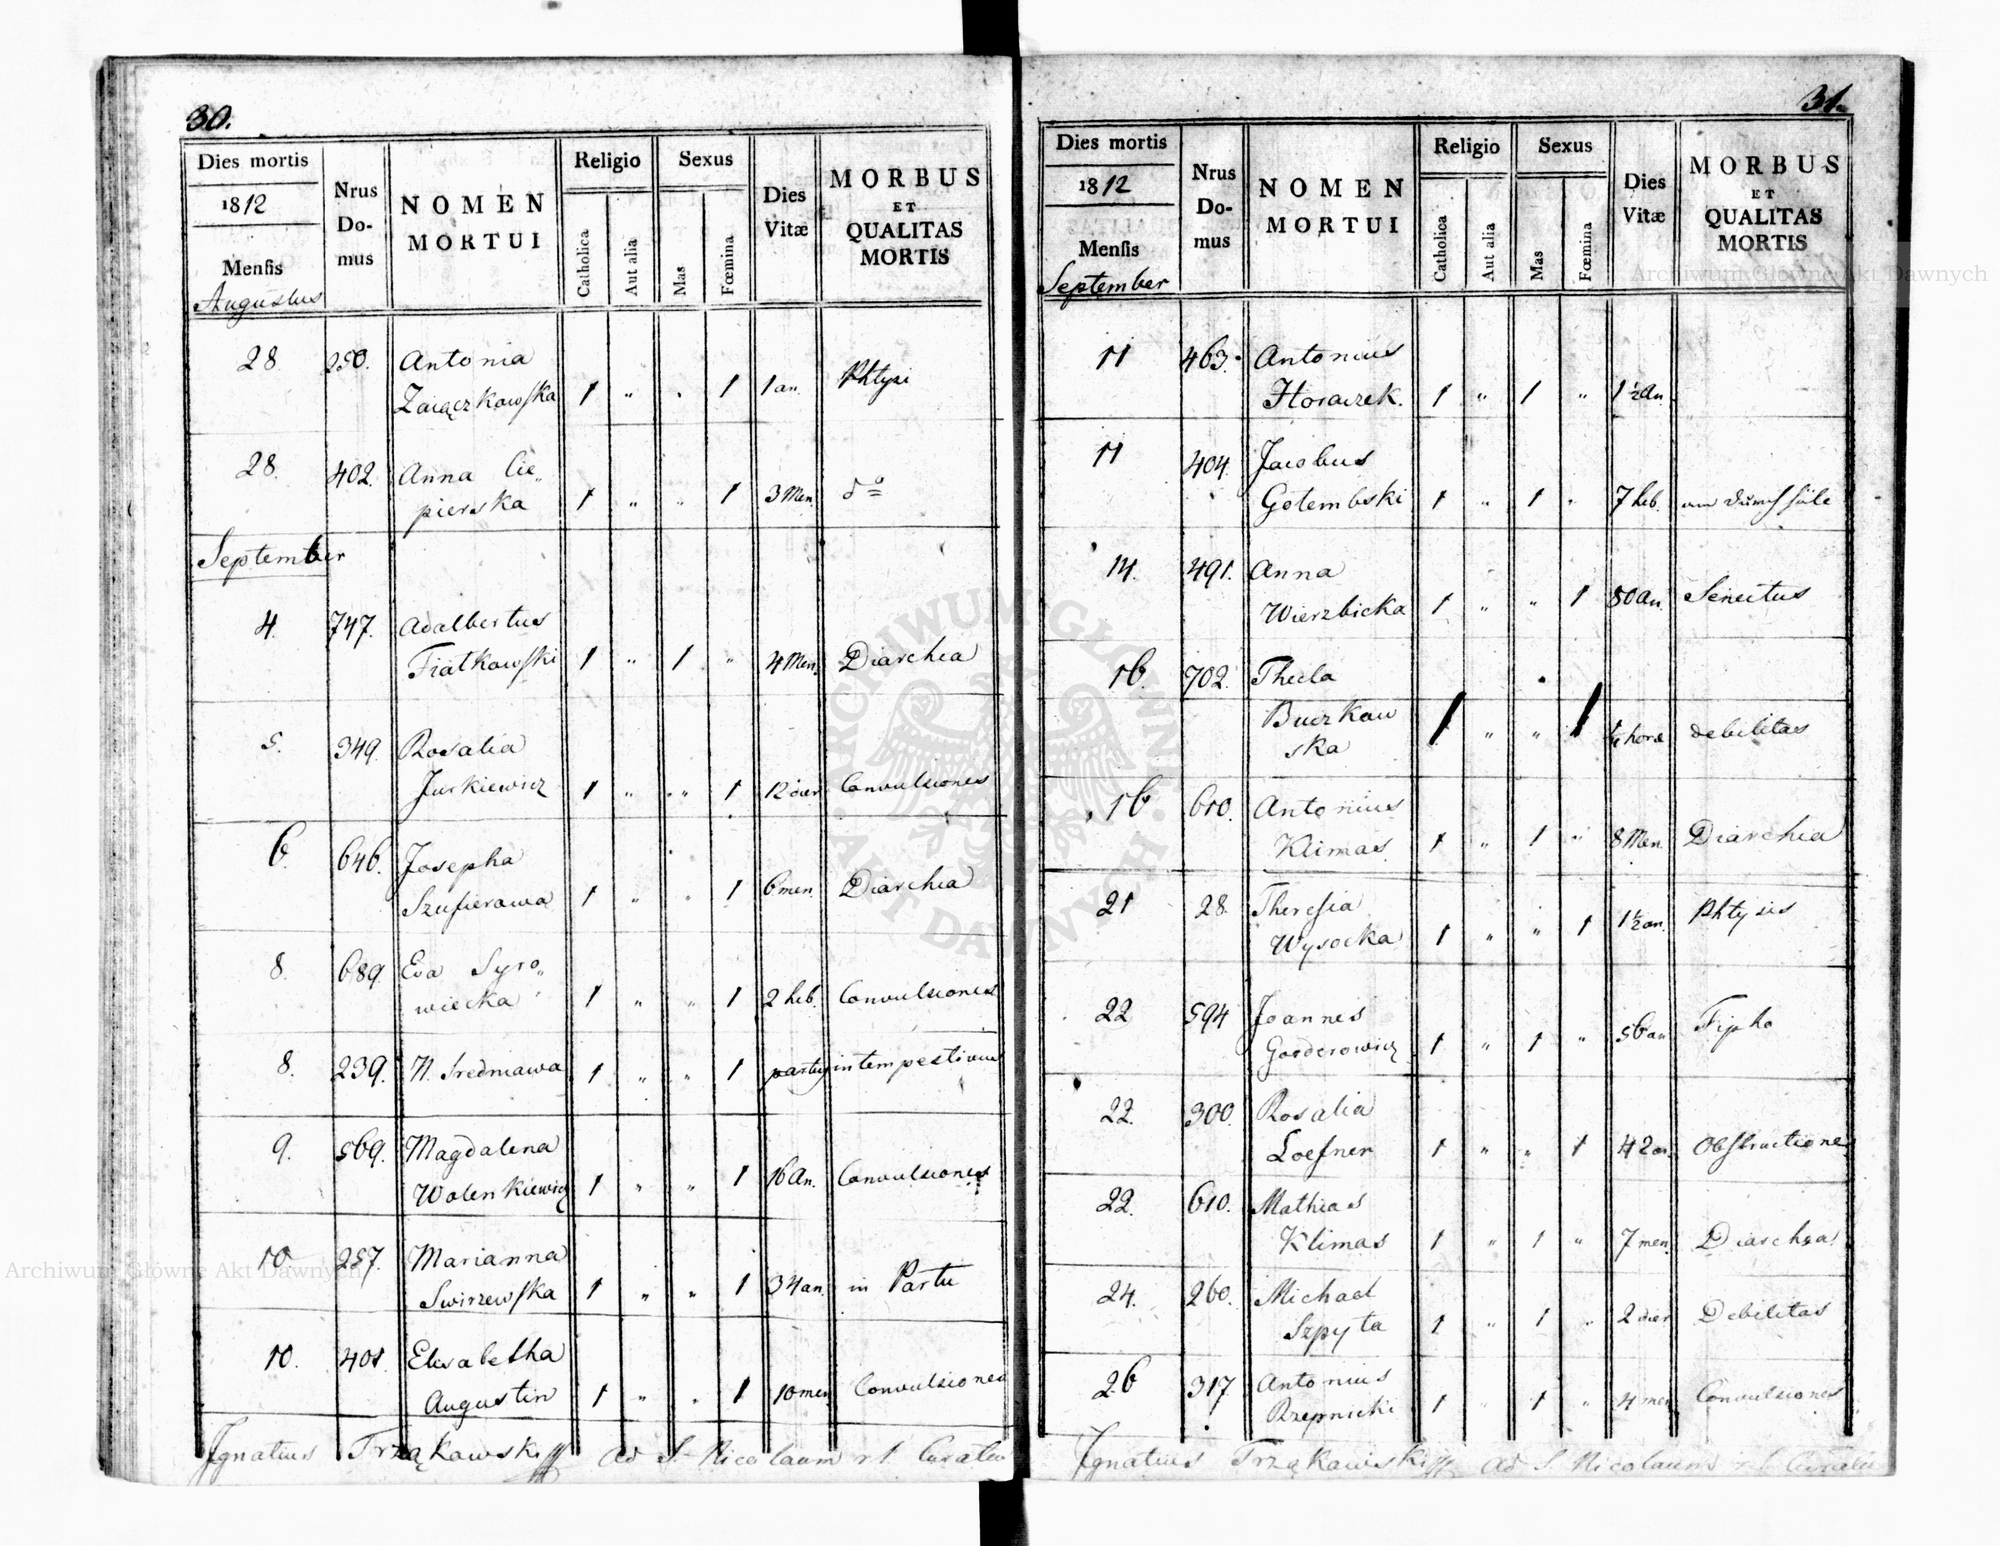 30.
Dies mortis
1812
Mensis
Augustus
Nrus
Do-
mus
NOMEN
MORTUI
Religio
Catholica
Aut alia
Sexus
Mas
Fœmina
Dies
Vitæ
MORBUS
ET
QUALITAS
MORTIS
28. 250. Antonia
Zaiączkowska 1 " . 1 1 an. Phtysi
28. 402. Anna Cie„
pierska 1 " " 1 3 Men. do
September
4. 747. Adalbertus
Fiatkowski 1 " 1 " 4 Men. Diarhea
5. 349. Rosalia
Jurkiewicz 1 " " 1 12 dier Convulsiones
6. 646. Josepha
Szufierawa 1 " " 1 6 men. Diarhea
8. 689. Eva Syro„
wiecka 1 " " 1 2 heb. Convulsiones
8. 239. N. Sredniawa 1 " " 1 partus intempestivus
9. 569. Magdalena
Wolenkiewicz 1 " " 1 16 An. Convulsiones
10 257. Marianna
Swirzewska 1 " " 1 34 an. in Partu
10. 401. Elisabetha
Augustin 1 " " 1 10 men. Convulsiones
Ignatius Trząkowski ad S. Nicolaum
31.
Dies mortis
1812
Mensis
September
Nrus
Do-
mus
NOMEN
MORTUI
Religio
Catholica
Aut alia
Sexus
Mas
Fœmina
Dies
Vitæ
MORBUS
ET
QUALITAS
MORTIS
11 463. Antonius
Horaczek. 1 " 1 " 1 1/2 An.
11 404. Jacobus
Gotembski 1 " 1 " 7 heb.
14. 491. Anna
Wierzbicka 1 " " 1 80 an. Senectus
16. 702. Thecla
Buczkow
ska 1 " " 1 horæ debilitas
16 610. Antonius
Klimas 1 " 1 " 8 Men. Diarhea
21 28. Theresia
Wysocka 1 " " 1 1 1/2 an. Phtysis
22 594 Joannes
Gorderowicz 1 " 1 " 56 an Tipho
22. 300 Rosalia
Loefner 1 " " 1 42 an. Obstructiones
22. 610. Mathias
Klimas 1 " 1 " 7 men. Diarhea
24. 260. Michael
Szpyta 1 " 1 " 2 dier Debilitas
26 317 Antonius
Rzepnicki 1 " 1 " 4 men Convulsiones
Ignatius Trząkowski ad S. Nicolaum
Archiwum Główne Akt Dawnych
Archiwum Główne Akt Dawnych
ARCHIWUM GŁÓWNE
AKT DAWNYCH